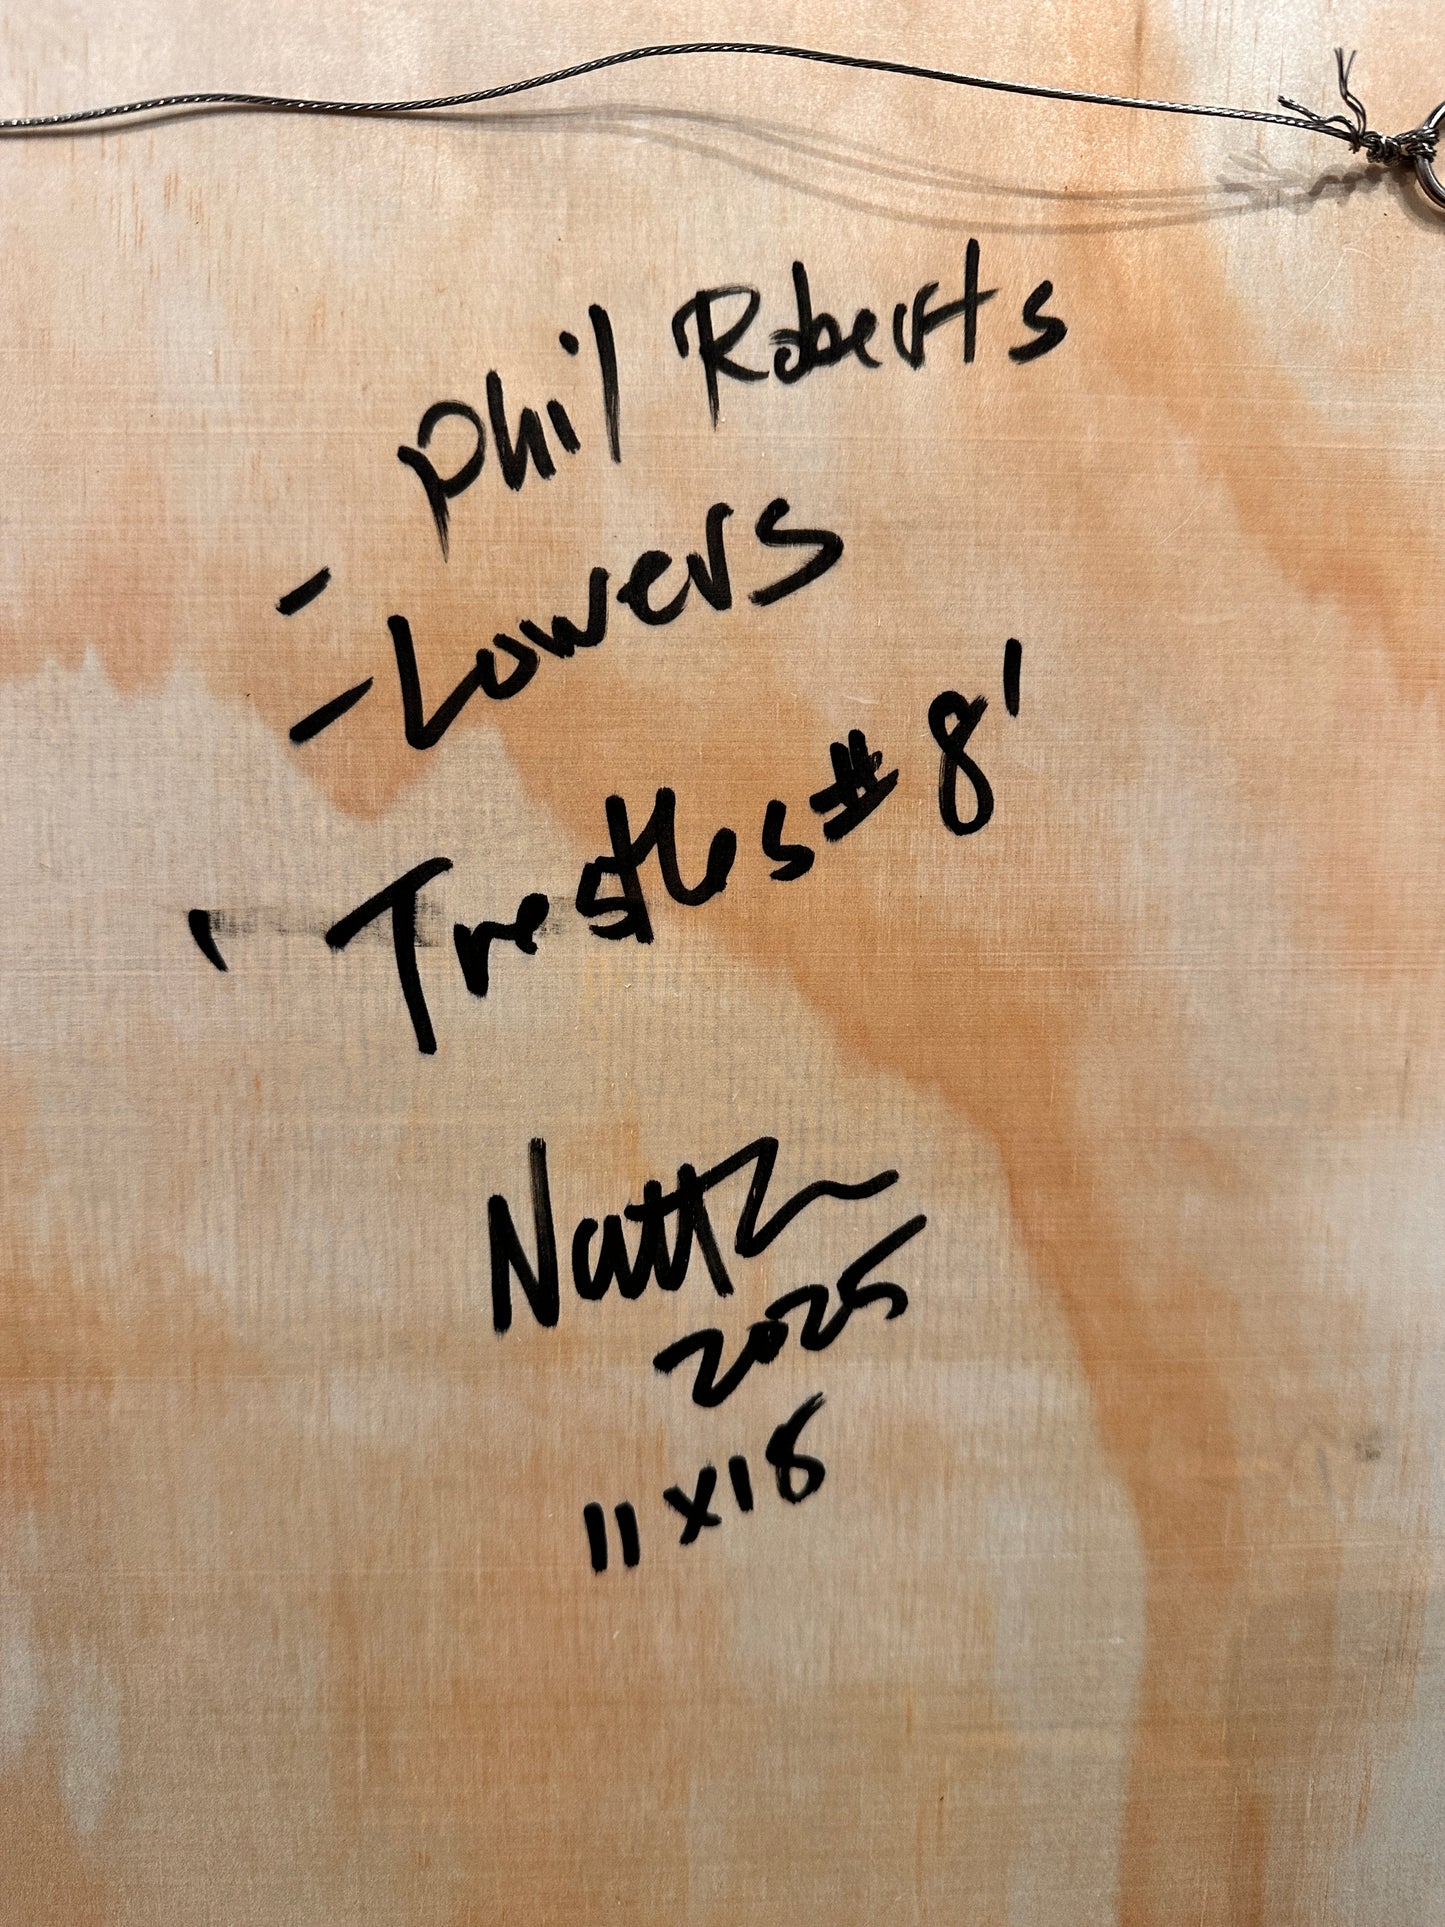 Phil Roberts
- Lowers
-
'Trestles #8'
2025
11 x 18